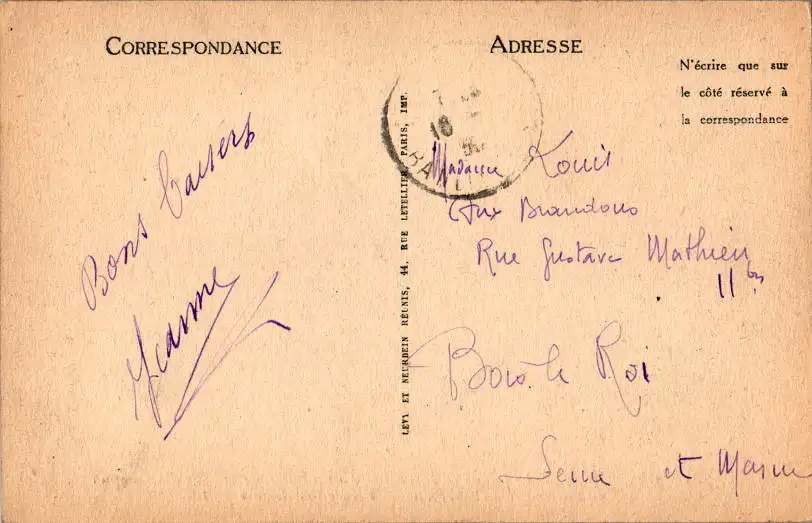 CORRESPONDANCE
ADRESSE
N'écrire que sur
le côté réservé à
la correspondance
Bons baisers
Jeanne
LEVY ET NEURDEIN RÉUNIS, 44, RUE LETELLIER, PARIS, IMP.
Madame Louis
Aux Brandons
Rue Gustave Mathieu
11bis
Bois le Roi
Seine et Marne